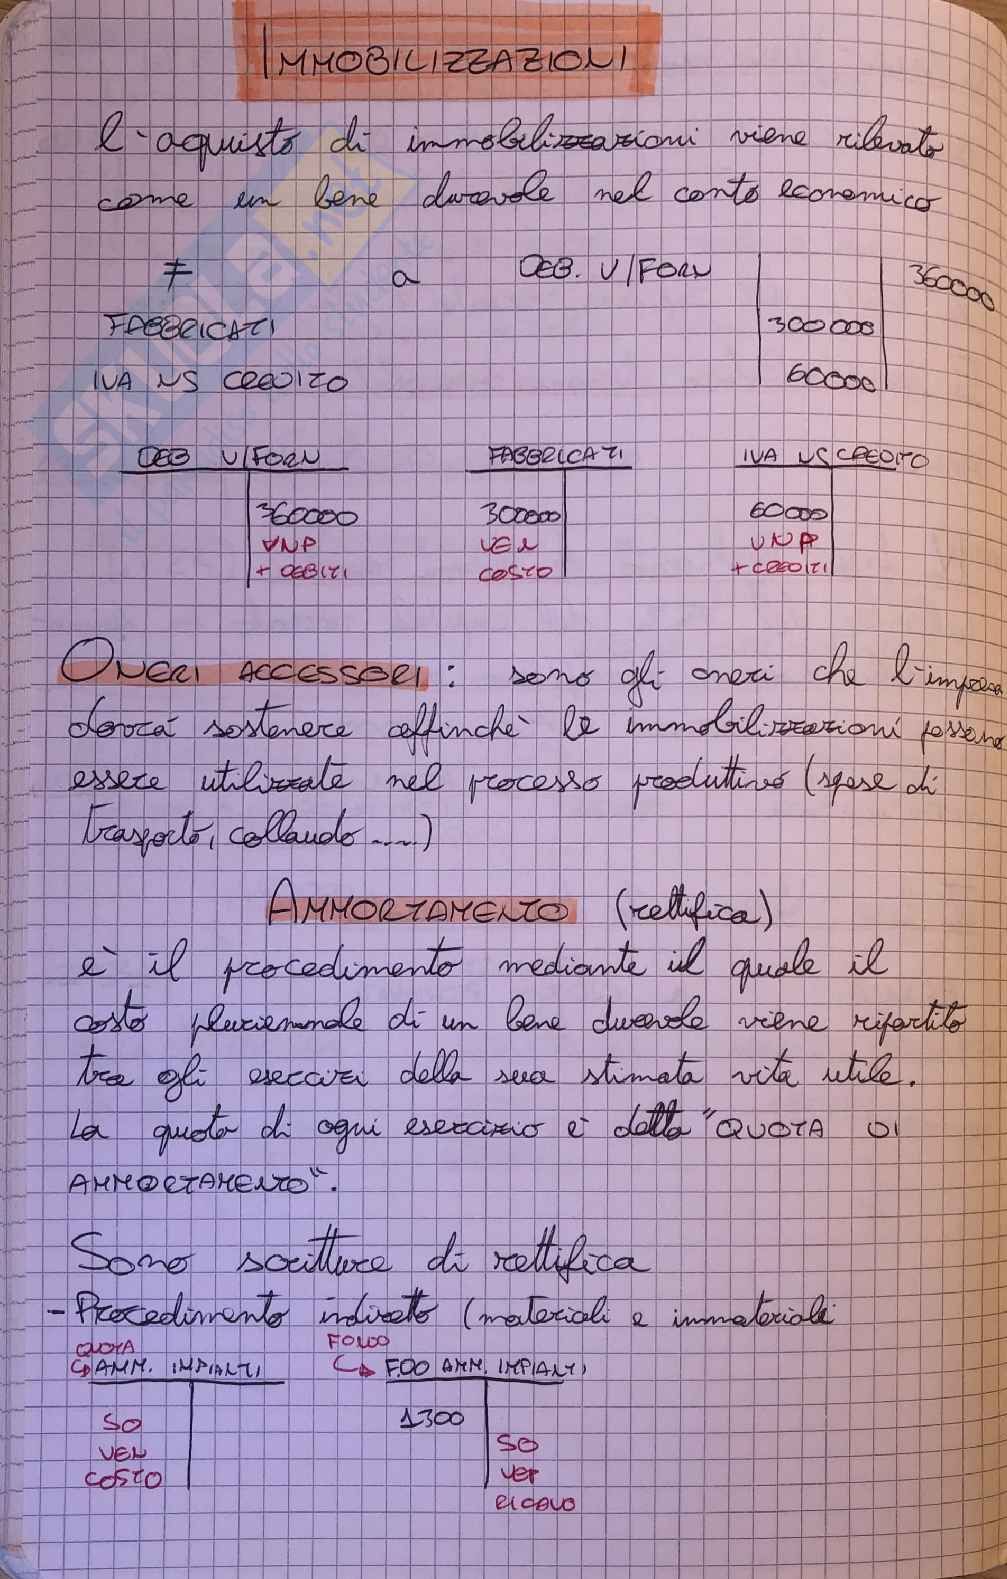 IMMOBILIZZAZIONI
l'aquisto di immobilizzazioni viene rilevato
come un bene durevole nel conto economico
≠ a DEB. V/FORN 360000
FABBRICATI 300000
IVA NS CREDITO 60000
DEB V/FORN FABBRICATI IVA NS CREDITO
360000 300000 60000
VNP VEN VNP
+ DEBITI COSTO + CREDITI
ONERI ACCESSORI: sono gli oneri che l'impresa
dovrà sostenere affinchè le immobilizzazioni possano
essere utilizzate nel processo produttivo (spese di
trasporto, collaudo .....)
AMMORTAMENTO (rettifica)
è il procedimento mediante il quale il
costo pluriennale di un bene durevole viene ripartito
tra gli esercizi della sua stimata vita utile.
La quota di ogni esercizio è detta "QUOTA DI
AMMORTAMENTO".
Sono scritture di rettifica
- Procedimento indiretto (materiali e immateriali
QUOTA FONDO
AMM. IMPIANTI F.DO AMM. IMPIANTI
SO 1300
VEN SO
COSTO VEP
RICAVO
SKUOLA.net